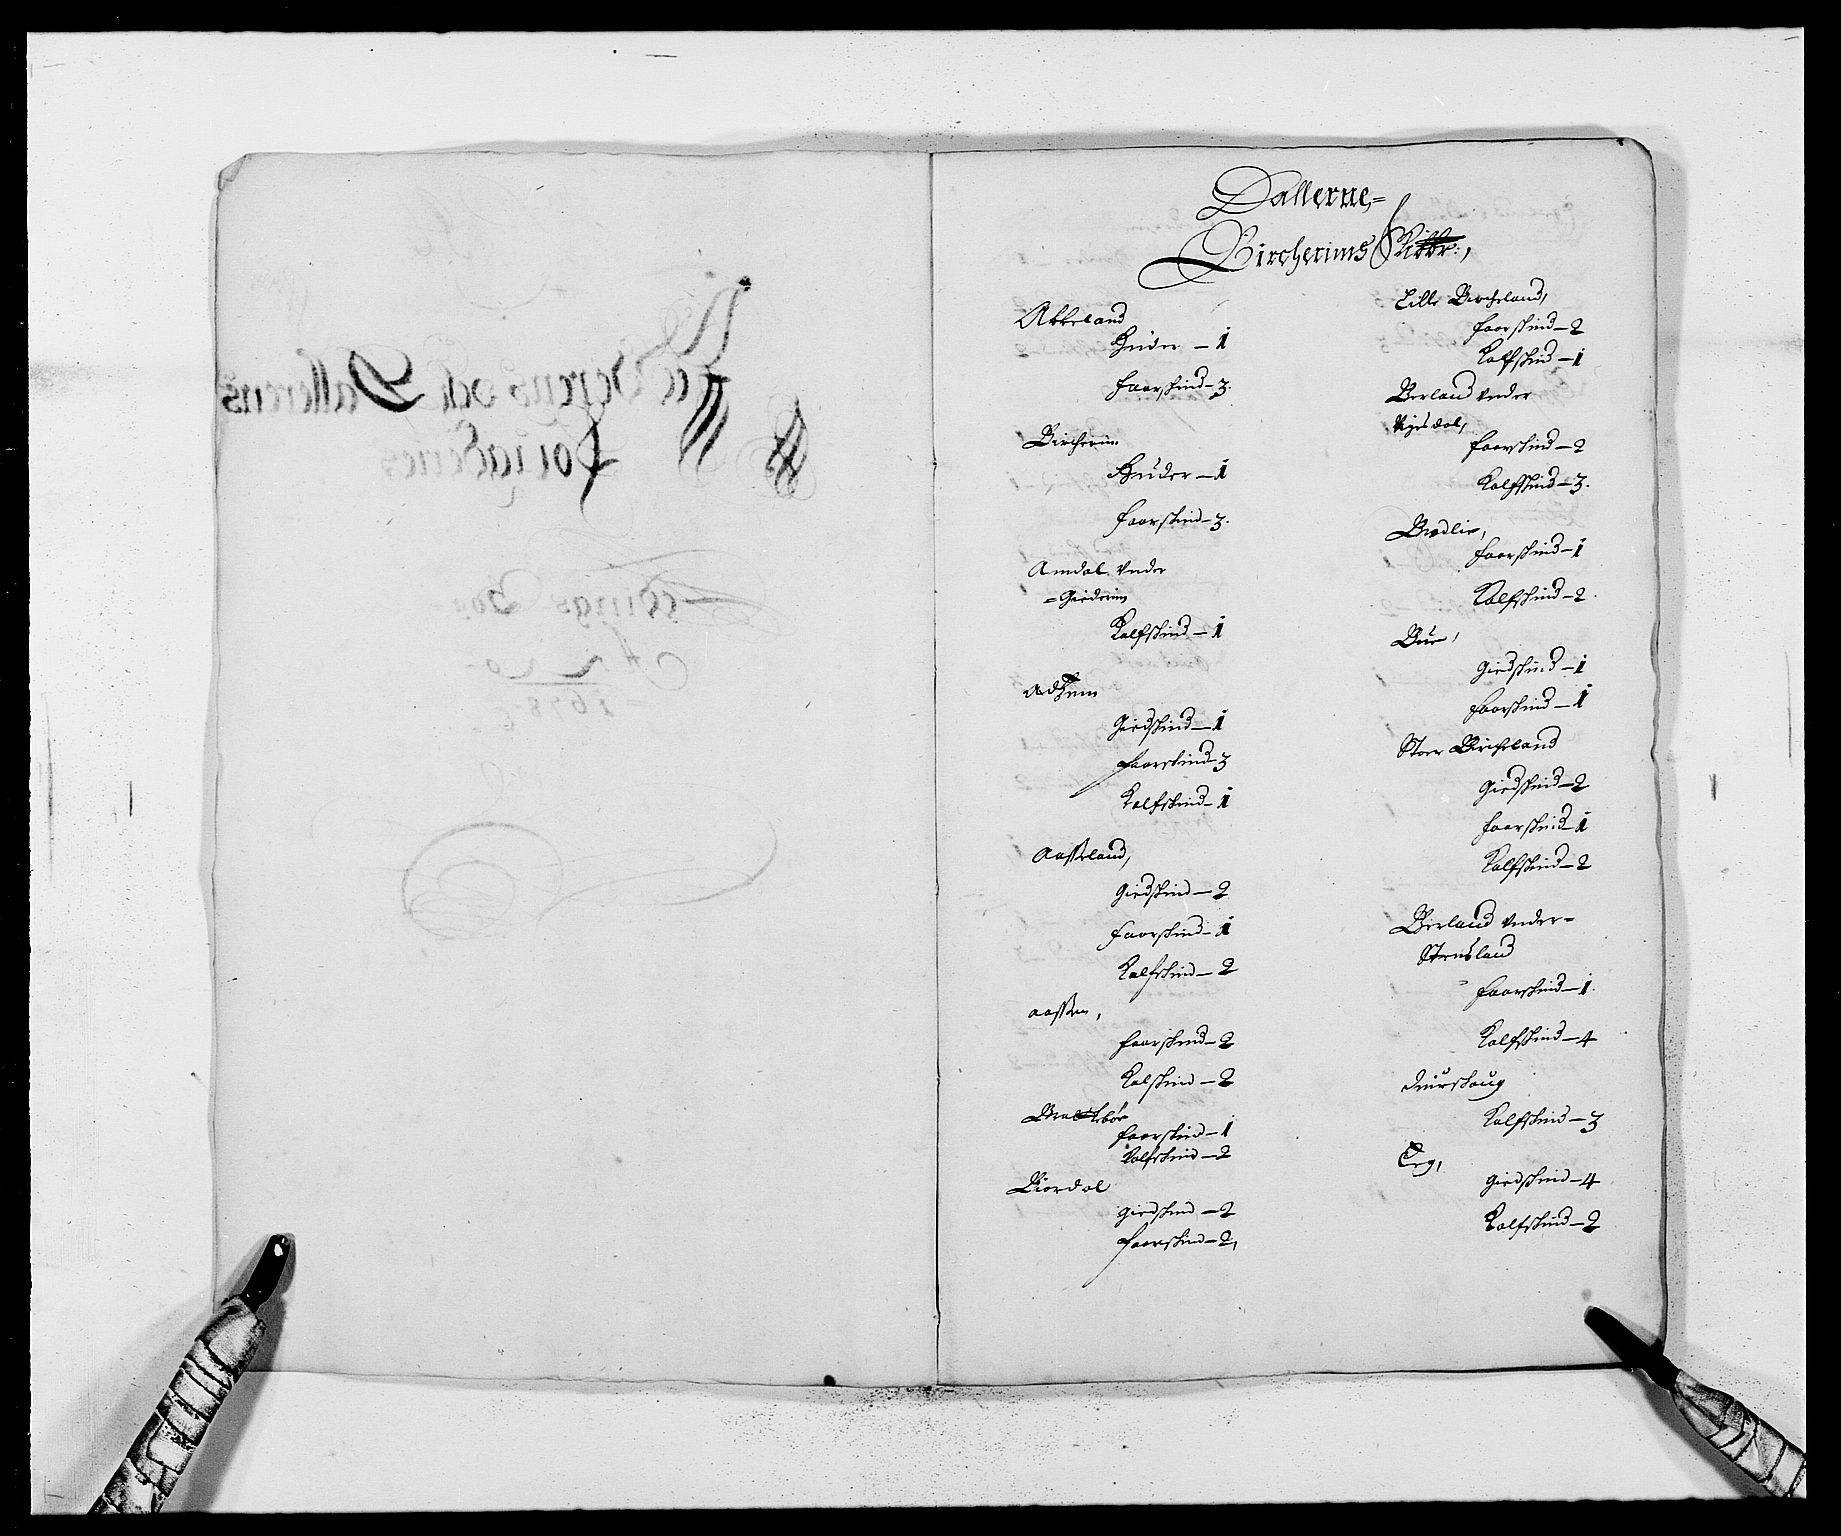 Dallerne,=
Bircherims Skibbr:,
Akkeland
Huder - 1
Faarskind - 3.
Bircherim
Huder - 1
Faarskind - 3.
Amdal under
=Giederim
Kalfskind - 1
Adheim
Giedskind - 1
Faarskind 3
Kalfskind - 1
Aasseland,
Giedskind - 2
Faarskind - 1
Kalfskind - 2
Aassen,
Faarskind - 2
Kalskind - 2
Faarskind - 1
Kalfskind - 2
Biordal
Giedskind - 2
Faarskind - 2,
Lille Bircheland,
Faarskind - 2
Kalfskind - 1
Berland under
Rijsdal,
Faarskind - 2
Kalfskind - 3.
Brødlie,
Faarskind - 1
Kalfskind - 2.
Bue,
Giedskind - 1
Faarskind - 1
Stoer Bircheland
Giedskind - 2
Faarskind - 1
Kalfskind - 2
Berland under=
Stensland
Faarskind - 1.
Kalfskind - 4
Kalfskind - 3
Eeg,
Giedskind - 4
Kalfskind - 2